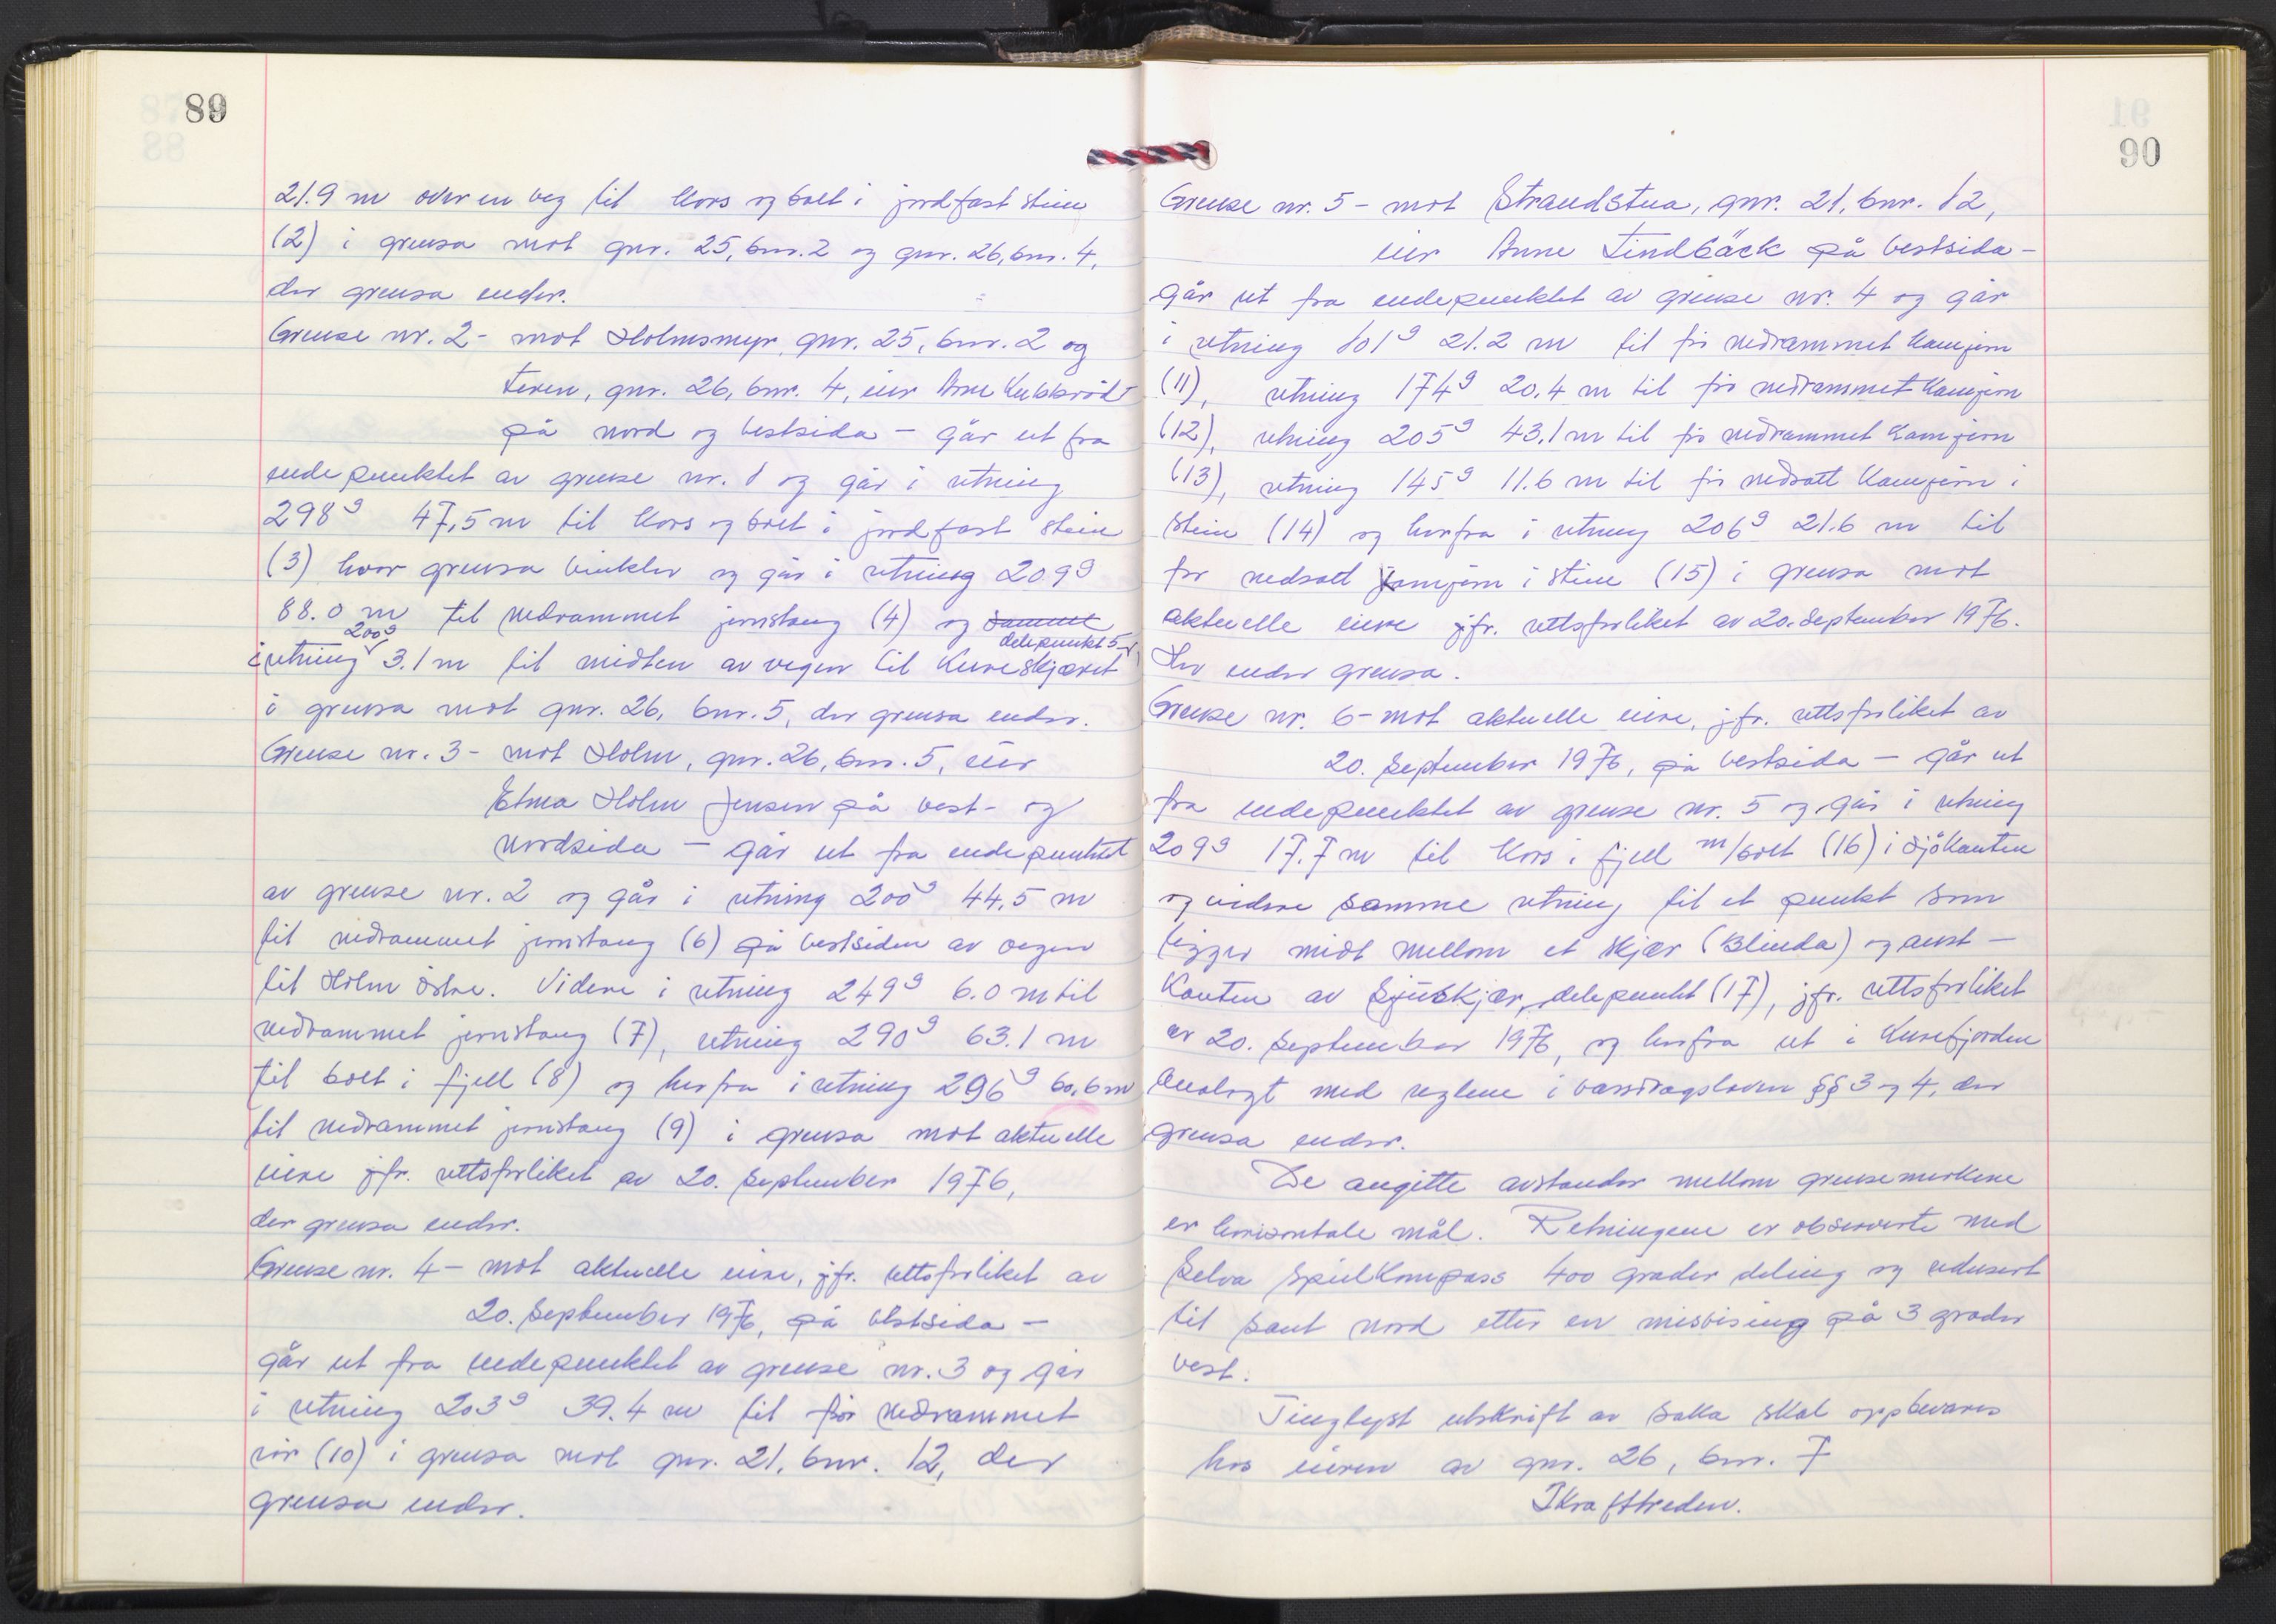 89
21.9 m over en veg til kors og bolt i jordfast stein
(2) i grensa mot gnr. 25, bnr. 2 og gnr. 26, bnr. 4,
der grensa ender.
Grense nr. 2 - mot Holmsmyr, gnr. 25, bnr. 2 og
Teien, gnr. 26, bnr. 4, eier Arne
på nord og vestsida - går ut fra
endepunktet av grense nr. 1 og går i retning
298g 47,5 m til kors og bolt i jordfast stein
(3) hvor grensa vinkler og går i retning 209g
88.0 m til nedrammet jernstang (4) og samme
i retning 200g 3.1 m til midten av vegen til Kureskjæret delepunkt 5
i grensa mot gnr. 26, bnr. 5, der grensa ender.
Grense nr. 3 - mot Holm, gnr. 26, bnr. 5, eier
Etna Holm Jensen på vest- og
nordsida - går ut fra endepunktet
av grense nr. 2 og går i retning 200g 44,5 m
til nedrammet jernstang (6) på vestsiden av vegen
til Holm østre. Videre i retning 249g 6.0 m til
nedrammet jernstang (7), retning 290g 63.1 m
til bolt i fjell (8) og herfra i retning 296g 60,6 m
til nedrammet jernstang (9) i grensa mot aktuelle
eiere jfr. rettsforliket av 20. september 1976,
der grensa ender.
Grense nr. 4 - mot aktuelle eiere, jfr. rettsforliket av
20. september 1976, på vestsida -
går ut fra endepunktet av grense nr. 3 og går
i retning 203g 39.4 m til før nedrammet
rør (10) i grensa mot gnr. 21, bnr. 12, der
grensa ender.
90
Grense nr. 5 - mot Strandstua, gnr. 21, bnr. 12,
eier Anne Lindbäck på vestsida -
går ut fra endepunktet av grense nr. 4 og går
i retning 101g 21.2 m til før nedrammet kamjern
(11), retning 174g 20.4 m til før nedrammet kamjern
(12), retning 205g 43.1 m til før nedrammet kamjern
(13), retning 145g 11.6 m til før nedsatt kamjern i
stein (14) og herfra i retning 206g 21.6 m til
før nedsatt kamjern i stein (15) i grensa mot
aktuelle eiere jfr. rettsforliket av 20. september 1976.
Her ender grensa.
Grense nr. 6 - mot aktuelle eiere, jfr. rettsforliket av
20. september 1976, på vestsida - går ut
fra endepunktet av grense nr. 5 og går i retning
209g 17.7 m til kors i fjell m/bolt (16) i sjøkanten
og videre samme retning til et punkt som
ligger midt mellom et skjær (Blinda) og aust-
kanten av skjær, delepunkt (17), jfr. rettsforliket
av 20. september 1976, og herfra ut i Kurefjorden
analogt med reglene i vassdragsloven §§ 3 og 4, der
grensa ender.
De angitte avstander mellom grensemerkene
er horisontale mål. Retningene er observerte med
Selva speilkompass 400 grader deling og redusert
til sant nord etter en misvising på 3 grader
vest.
Tinglyst utskrift av saka skal oppbevares
hos eieren av gnr. 26, bnr. 7
Ikrafttreden.